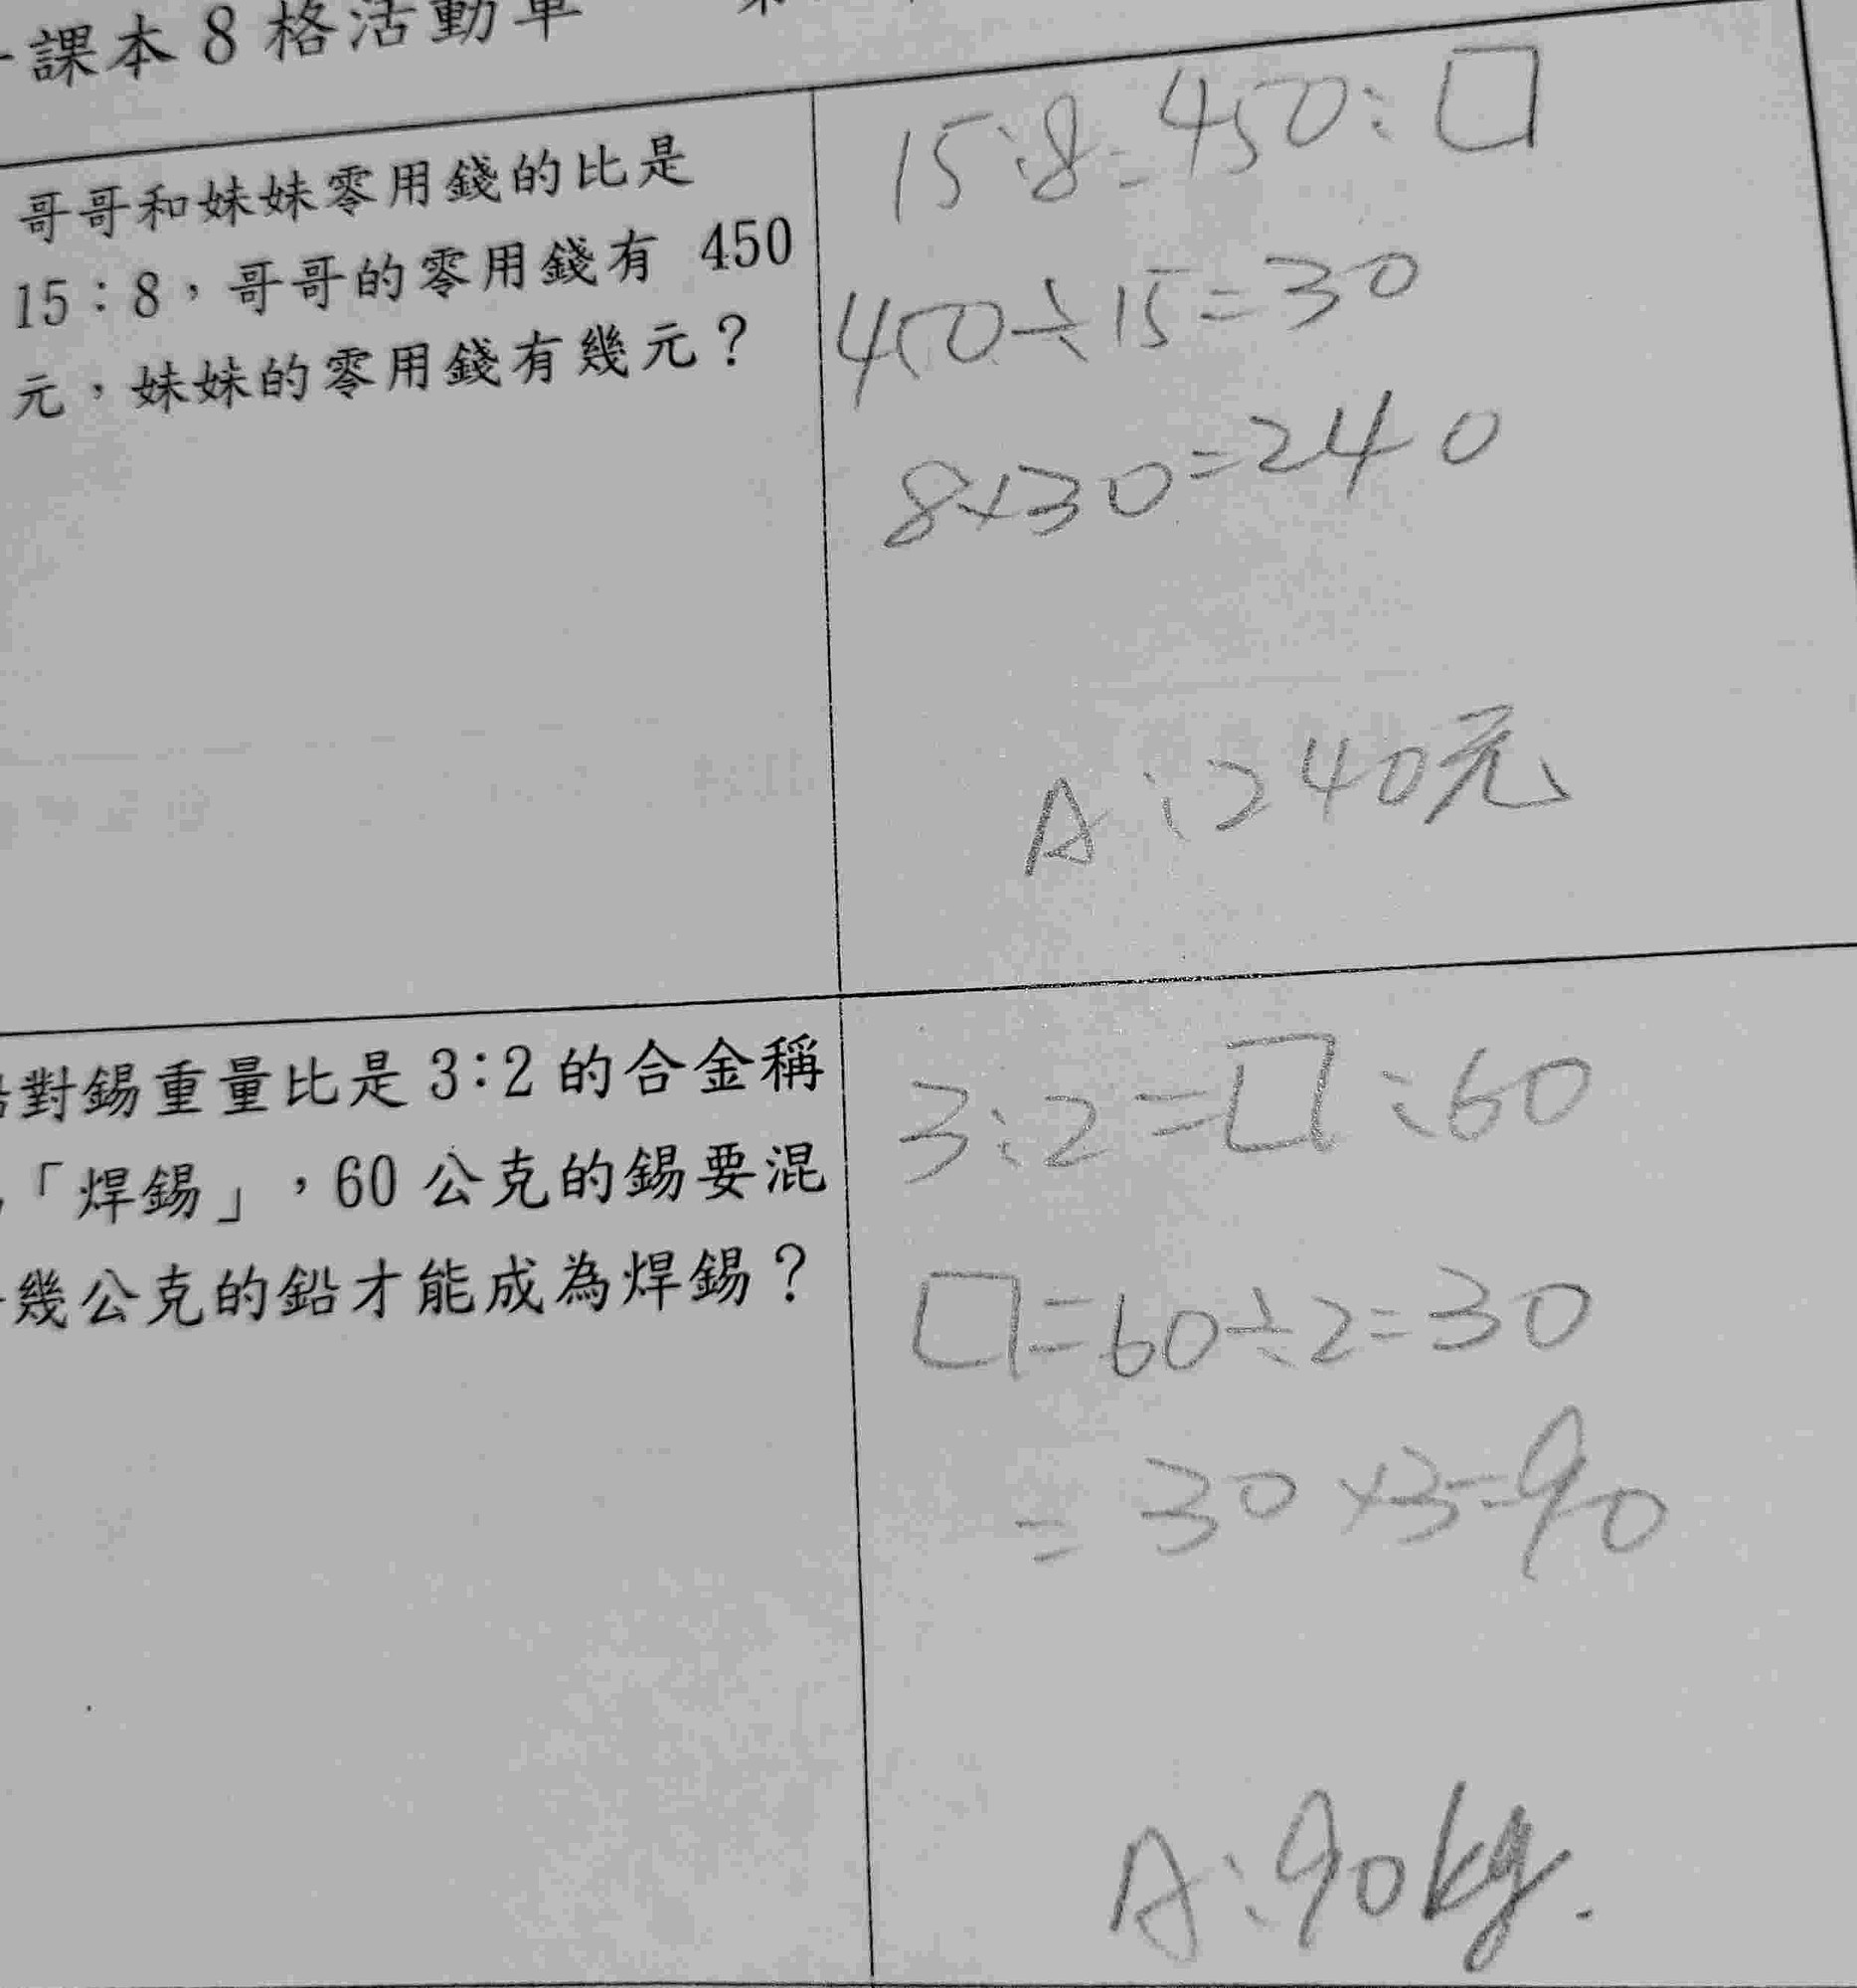 課本 8 格活動單
哥哥和妹妹零用錢的比是
15：8，哥哥的零用錢有 450
元，妹妹的零用錢有幾元？
15:8=450:□
450÷15=30
8×30=240
A:240元
對錫重量比是 3:2 的合金稱
「焊錫」，60 公克的錫要混
幾公克的鉛才能成為焊錫？
3:2=□:60
□=60÷2=30
=30×3=90
A:90kg.